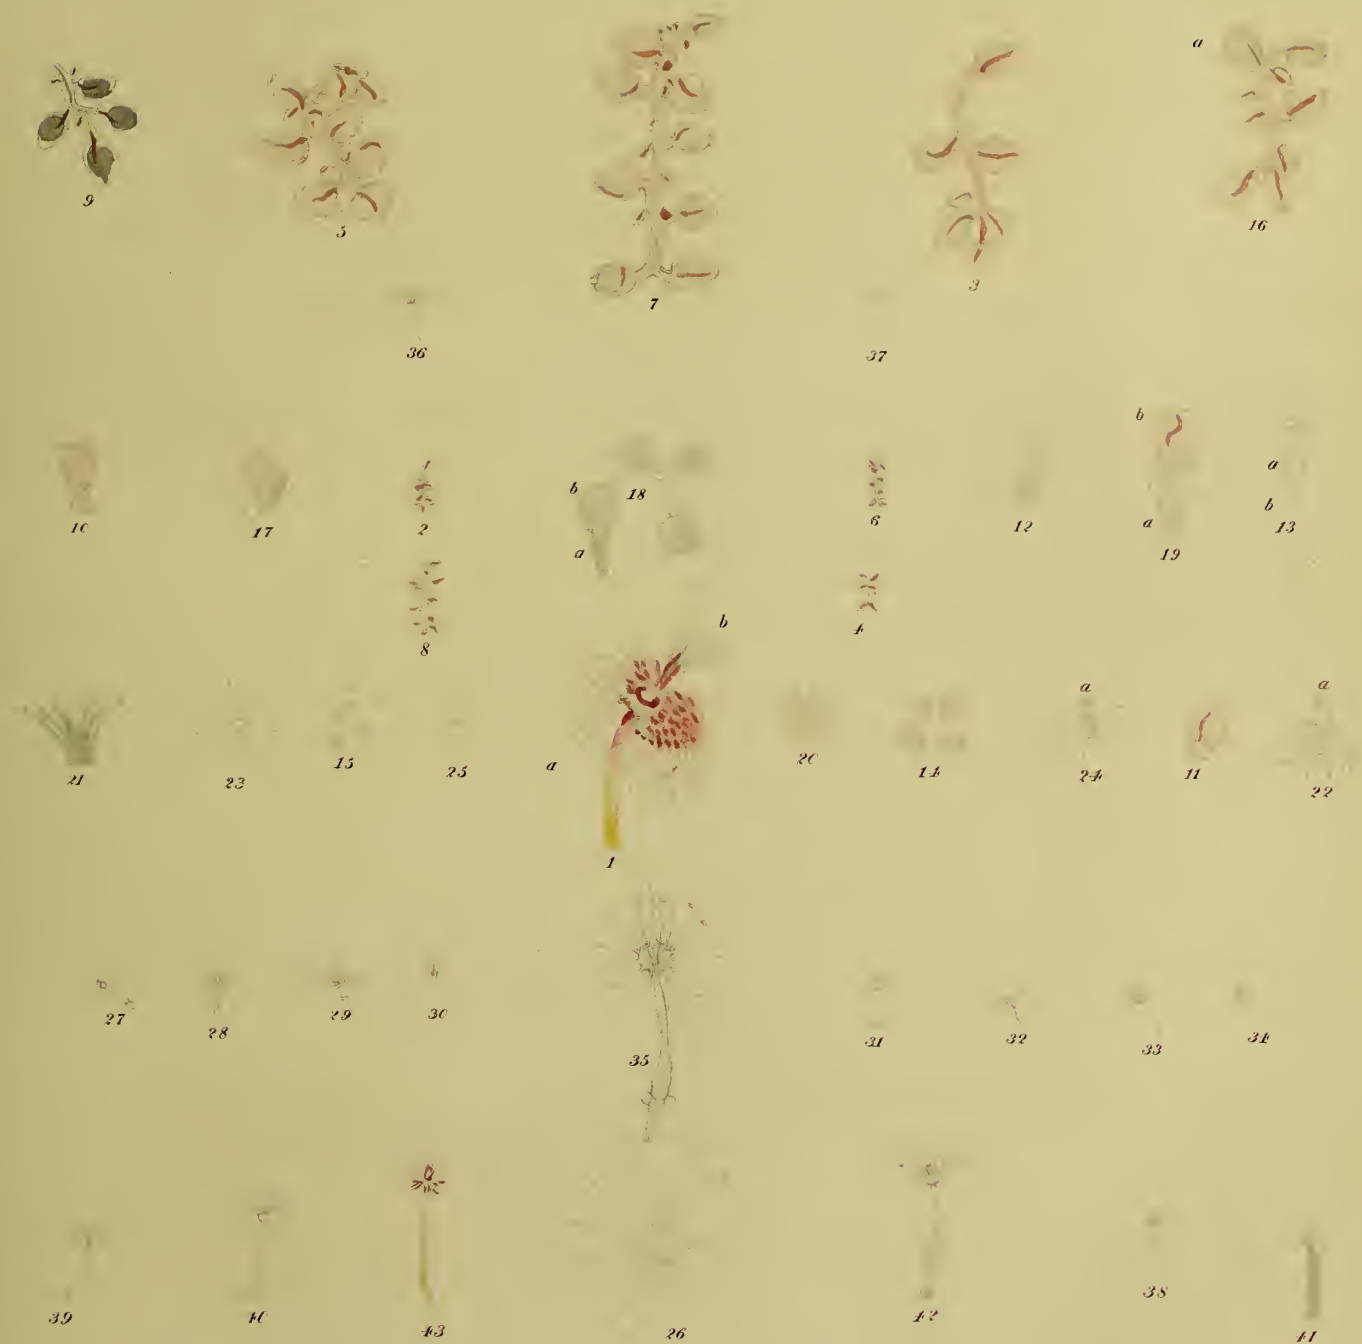 a
9
5
7
3
16
36
37
b
b
a
10
17
2
b
18
6
12
a
b
13
a
19
8
4
b
a
a
21
23
15
25
a
20
14
24
11
22
1
27
28
29
30
35
31
32
33
34
39
40
43
26
42
38
41